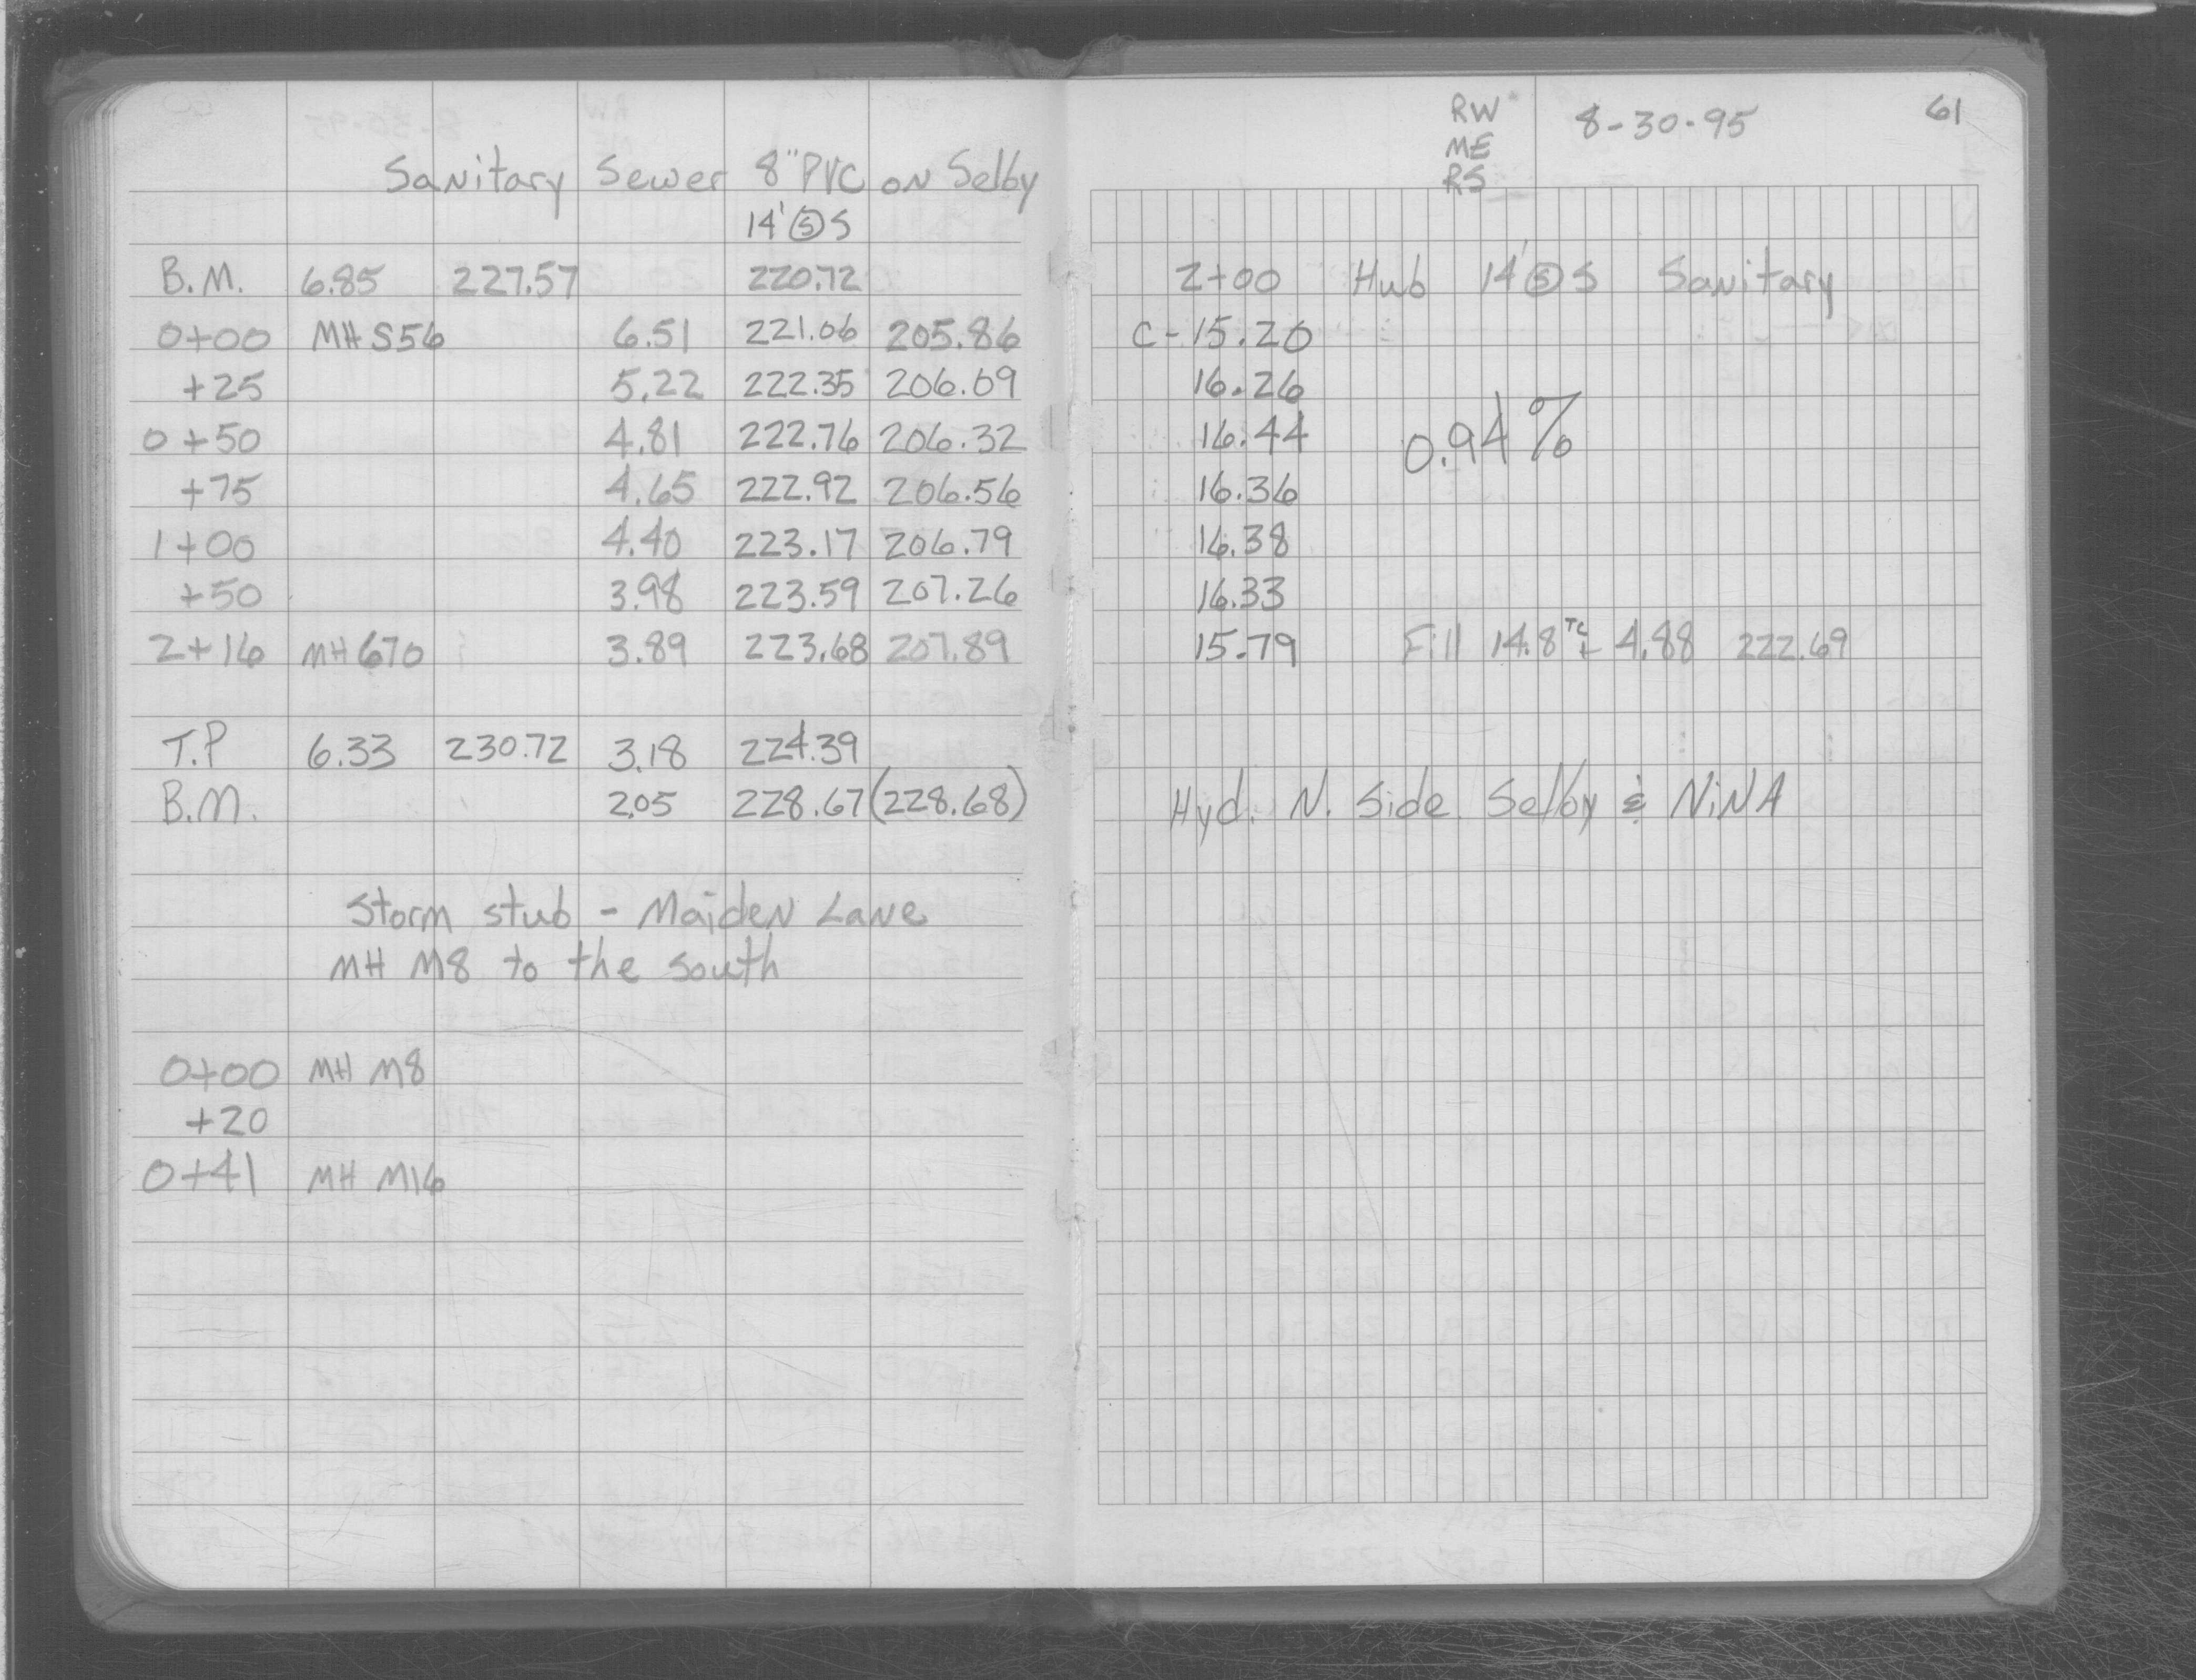 Sanitary Sewer 8" PVC on Selby
14' Ⓢ S
B.M. 6.85 227.57 220.72
0+00 MH S56 6.51 221.06 205.86
+25 5.22 222.35 206.09
0+50 4.81 222.76 206.32
+75 4.65 222.92 206.56
1+00 4.40 223.17 206.79
+50 3.98 223.59 207.26
2+16 MH 670 3.89 223.68 207.89
T.P 6.33 230.72 3.18 224.39
B.M. 2.05 228.67 (228.68)
Storm stub - Maiden Lane
MH M8 to the south
0+00 MH M8
+20
0+41 MH M16
RW 8-30-95 61
ME
RS
2+00 Hub 14' Ⓢ S Sanitary
C-15.20
16.26
16.44 0.94%
16.36
16.38
16.33
15.79 Fill 14.8 TC 4.88 222.69
Hyd. N. Side Selby & NiNA